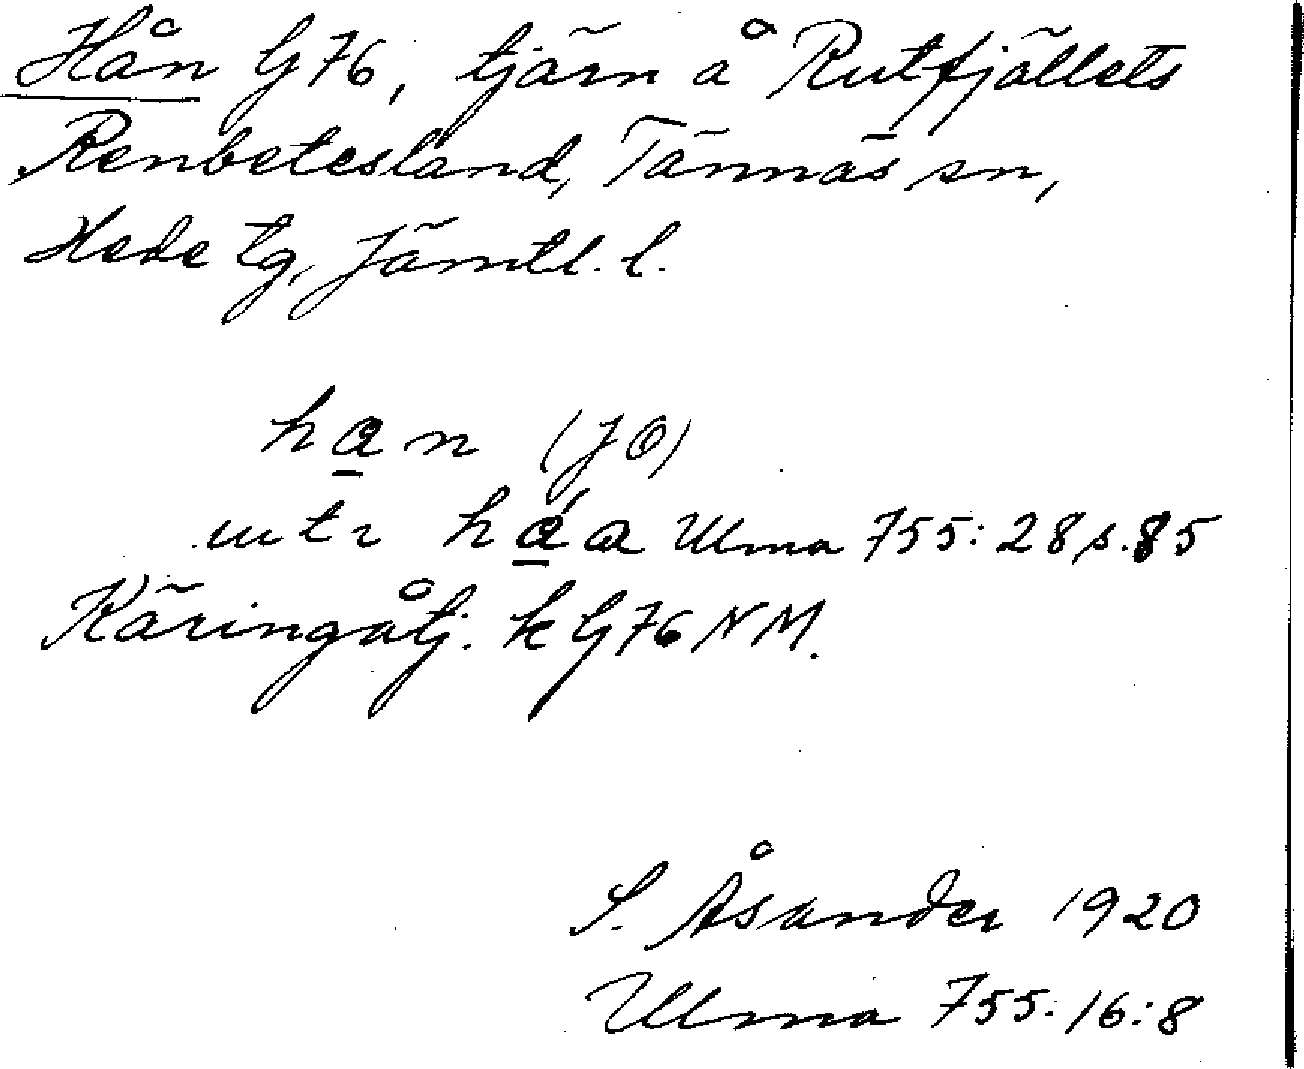 Hån G76, tjärn å Rutfjällets
Renbetesland, Tännäs sn,
Hede tg, Jämtl. l.
han (JÖ)
mtr háa Ulma 755:28 s. 85
Käringåtj. k G76 NM.
S. Åsander 1920
Ulma 755:16:8